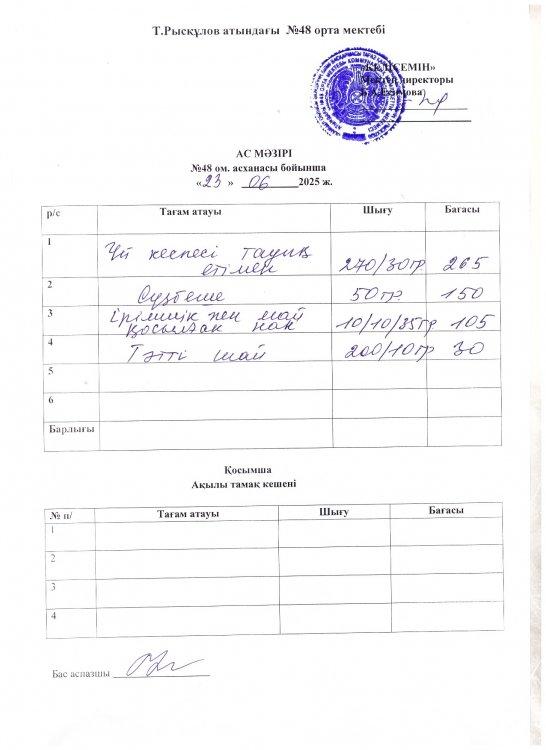 Т.Рысқұлов атындағы №48 орта мектебі
«КЕЛІСЕМІН»
Мектеп директоры
АС МӘЗІРІ
№48 ом. асханасы бойынша
«23» 06 2025 ж.
р/с Тағам атауы Шығу Бағасы
1 Үй кеспесі тауық
етімен 270/30гр 265
2 Сүзбеше 50гр 150
3 ірімшік пен май
қосылған нан 10/10/35гр 105
4 Тәтті шай 200/10гр 30
5
6
Барлығы
Қосымша
Ақылы тамақ кешені
№ п/ Тағам атауы Шығу Бағасы
1
2
3
4
Бас аспазшы